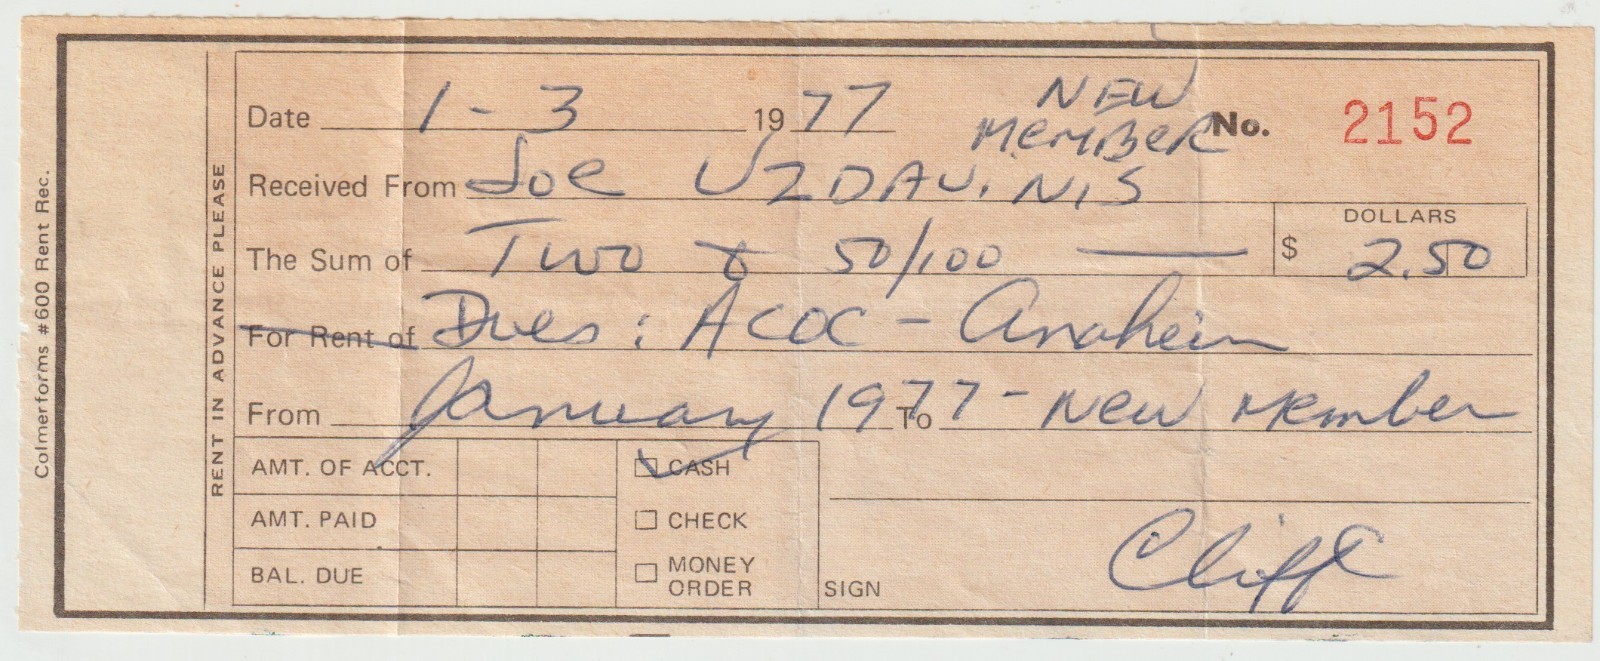 Colmerforms #600 Rent Rec.
RENT IN ADVANCE PLEASE
NEW
Date 1-3 1977 MEMBER No. 2152
Received From Joe UZDAVINIS
DOLLARS
The Sum of Two & 50/100 — $ 2.50
For Rent of Dues: ACOC - Anaheim
From January 1977 To - New Member
AMT. OF ACCT. CASH
AMT. PAID CHECK
BAL. DUE MONEY ORDER
SIGN Cliff